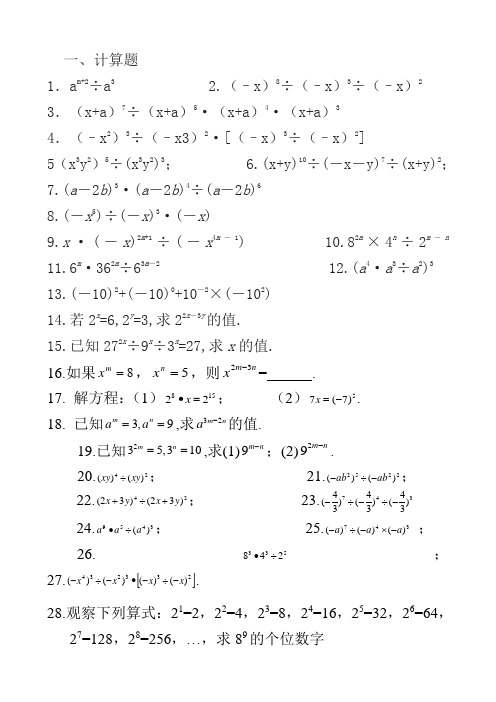 一、计算题
1. aᵐ⁺²÷a³ 2.（﹣x）⁸÷（﹣x）³÷（﹣x）²
3. （x+a）⁷÷（x+a）⁵·（x+a）⁴·（x+a）³
4. （﹣x²）³÷（﹣x3）²·[（﹣x）³÷（﹣x）²]
5（x³y²）⁵÷(x³y²)³； 6.(x+y)¹⁰÷(－x－y)⁷÷(x+y)²；
7.(a－2b)³·(a－2b)⁴÷(a－2b)⁶
8.(－x⁵)÷(－x)³·(－x)
9.x·(－x)²ᵐ⁺¹÷(－x⁴ᵐ⁻¹) 10.8²ᵐ×4ⁿ÷2ᵐ⁻ⁿ
11.6ᵐ·36²ᵐ÷6³ᵐ⁻² 12.(a⁴·a³÷a²)³
13.(－10)²+(－10)⁰+10⁻²×(－10²)
14.若2ˣ=6,2ʸ=3,求2²ˣ⁻³ʸ的值.
15.已知27²ˣ÷9ˣ÷3ˣ=27,求x的值.
16.如果xᵐ=8，xⁿ=5，则x²ᵐ⁻³ⁿ=______.
17. 解方程：（1）2⁸•x=2¹⁵； （2）7x=(−7)⁵.
18. 已知aᵐ=3,aⁿ=9,求a³ᵐ⁻²ⁿ的值.
19.已知3²ᵐ=5,3ⁿ=10,求(1)9ᵐ⁻ⁿ；(2)9²ᵐ⁻ⁿ.
20.(xy)⁴÷(xy)²； 21.(−ab²)⁵÷(−ab²)²；
22.(2x+3y)⁴÷(2x+3y)²； 23.(−4/3)⁷÷(−4/3)⁴÷(−4/3)³
24.a⁹•a⁵÷(a⁴)³； 25.(−a)⁷÷(−a)⁴×(−a)³；
26. 8³•4³÷2⁵；
27.(−x⁴)³÷(−x²)³•[(−x)³÷(−x)²].
28.观察下列算式：2¹=2，2²=4，2³=8，2⁴=16，2⁵=32，2⁶=64，
2⁷=128，2⁸=256，…，求8⁹的个位数字